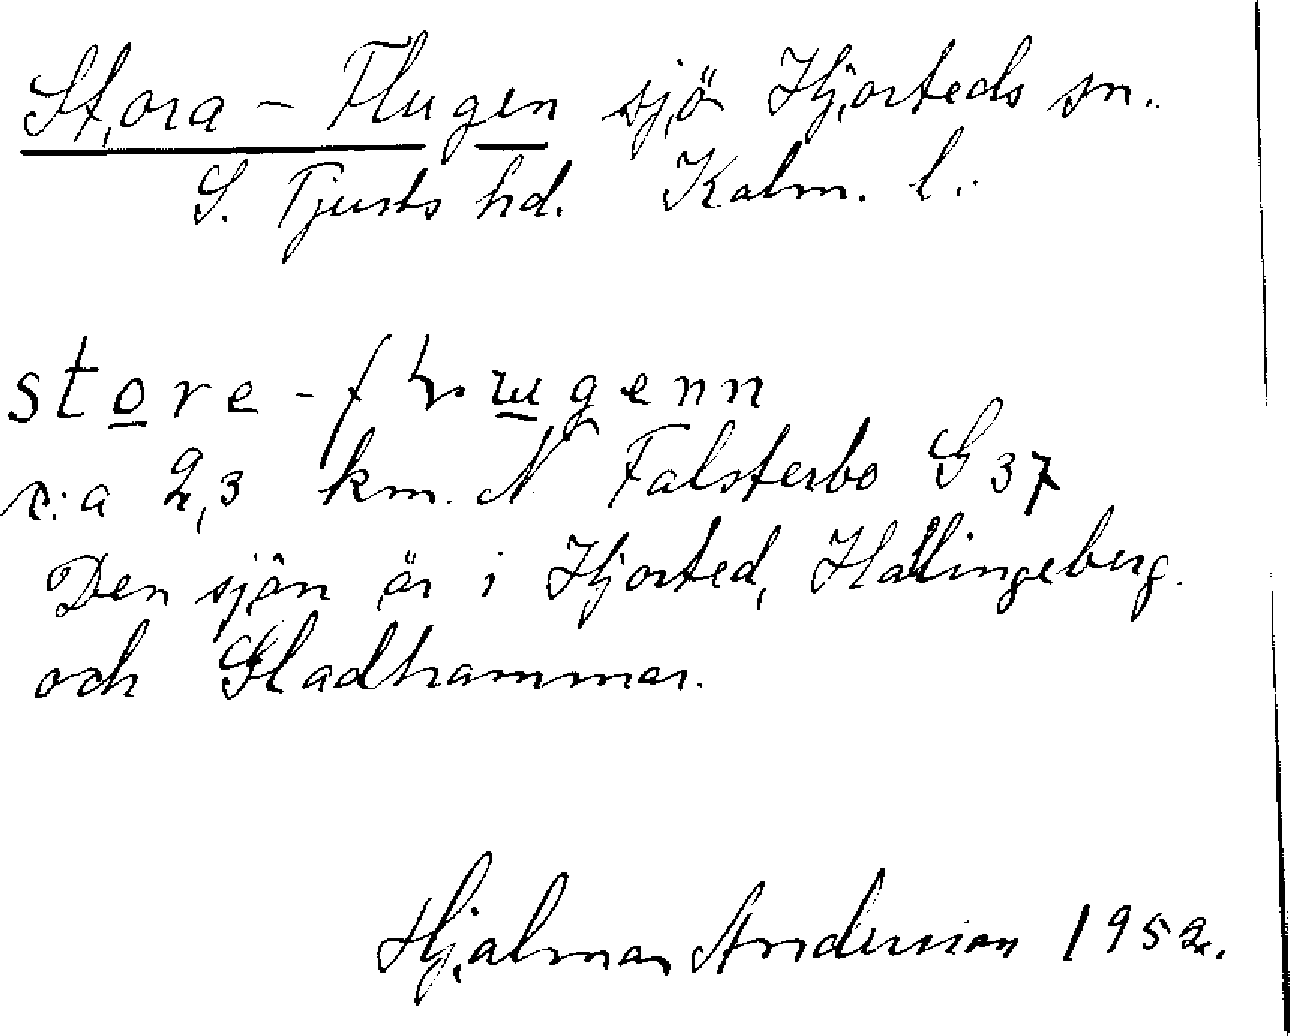 Stora - Flugen sjö Hjorteds sn.
S. Tjusts hd. Kalm. l.
store-
c:a 2,3 km. N Falsterbo G 37
Den sjön är i Hjorted, Hallingeberg.
och Gladhammar.
Hjalmar Andersson 1952.